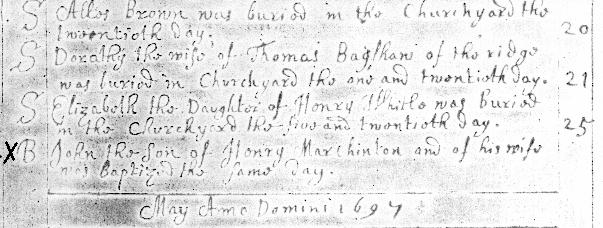 S Alles Brown was buried in the Churchyard the
twentieth day. 20
S Dorathy the wife of Thomas Bagshaw of the ridge
was buried in Churchyard the one and twentieth day. 21
S Elizabeth the Daughter of Henry Whitle was buried
in the Churchyard the five and twentieth day. 25
X B John the Son of Henry Marchinton and of his wife
was Baptized the same day.
May Anno Domini 1697